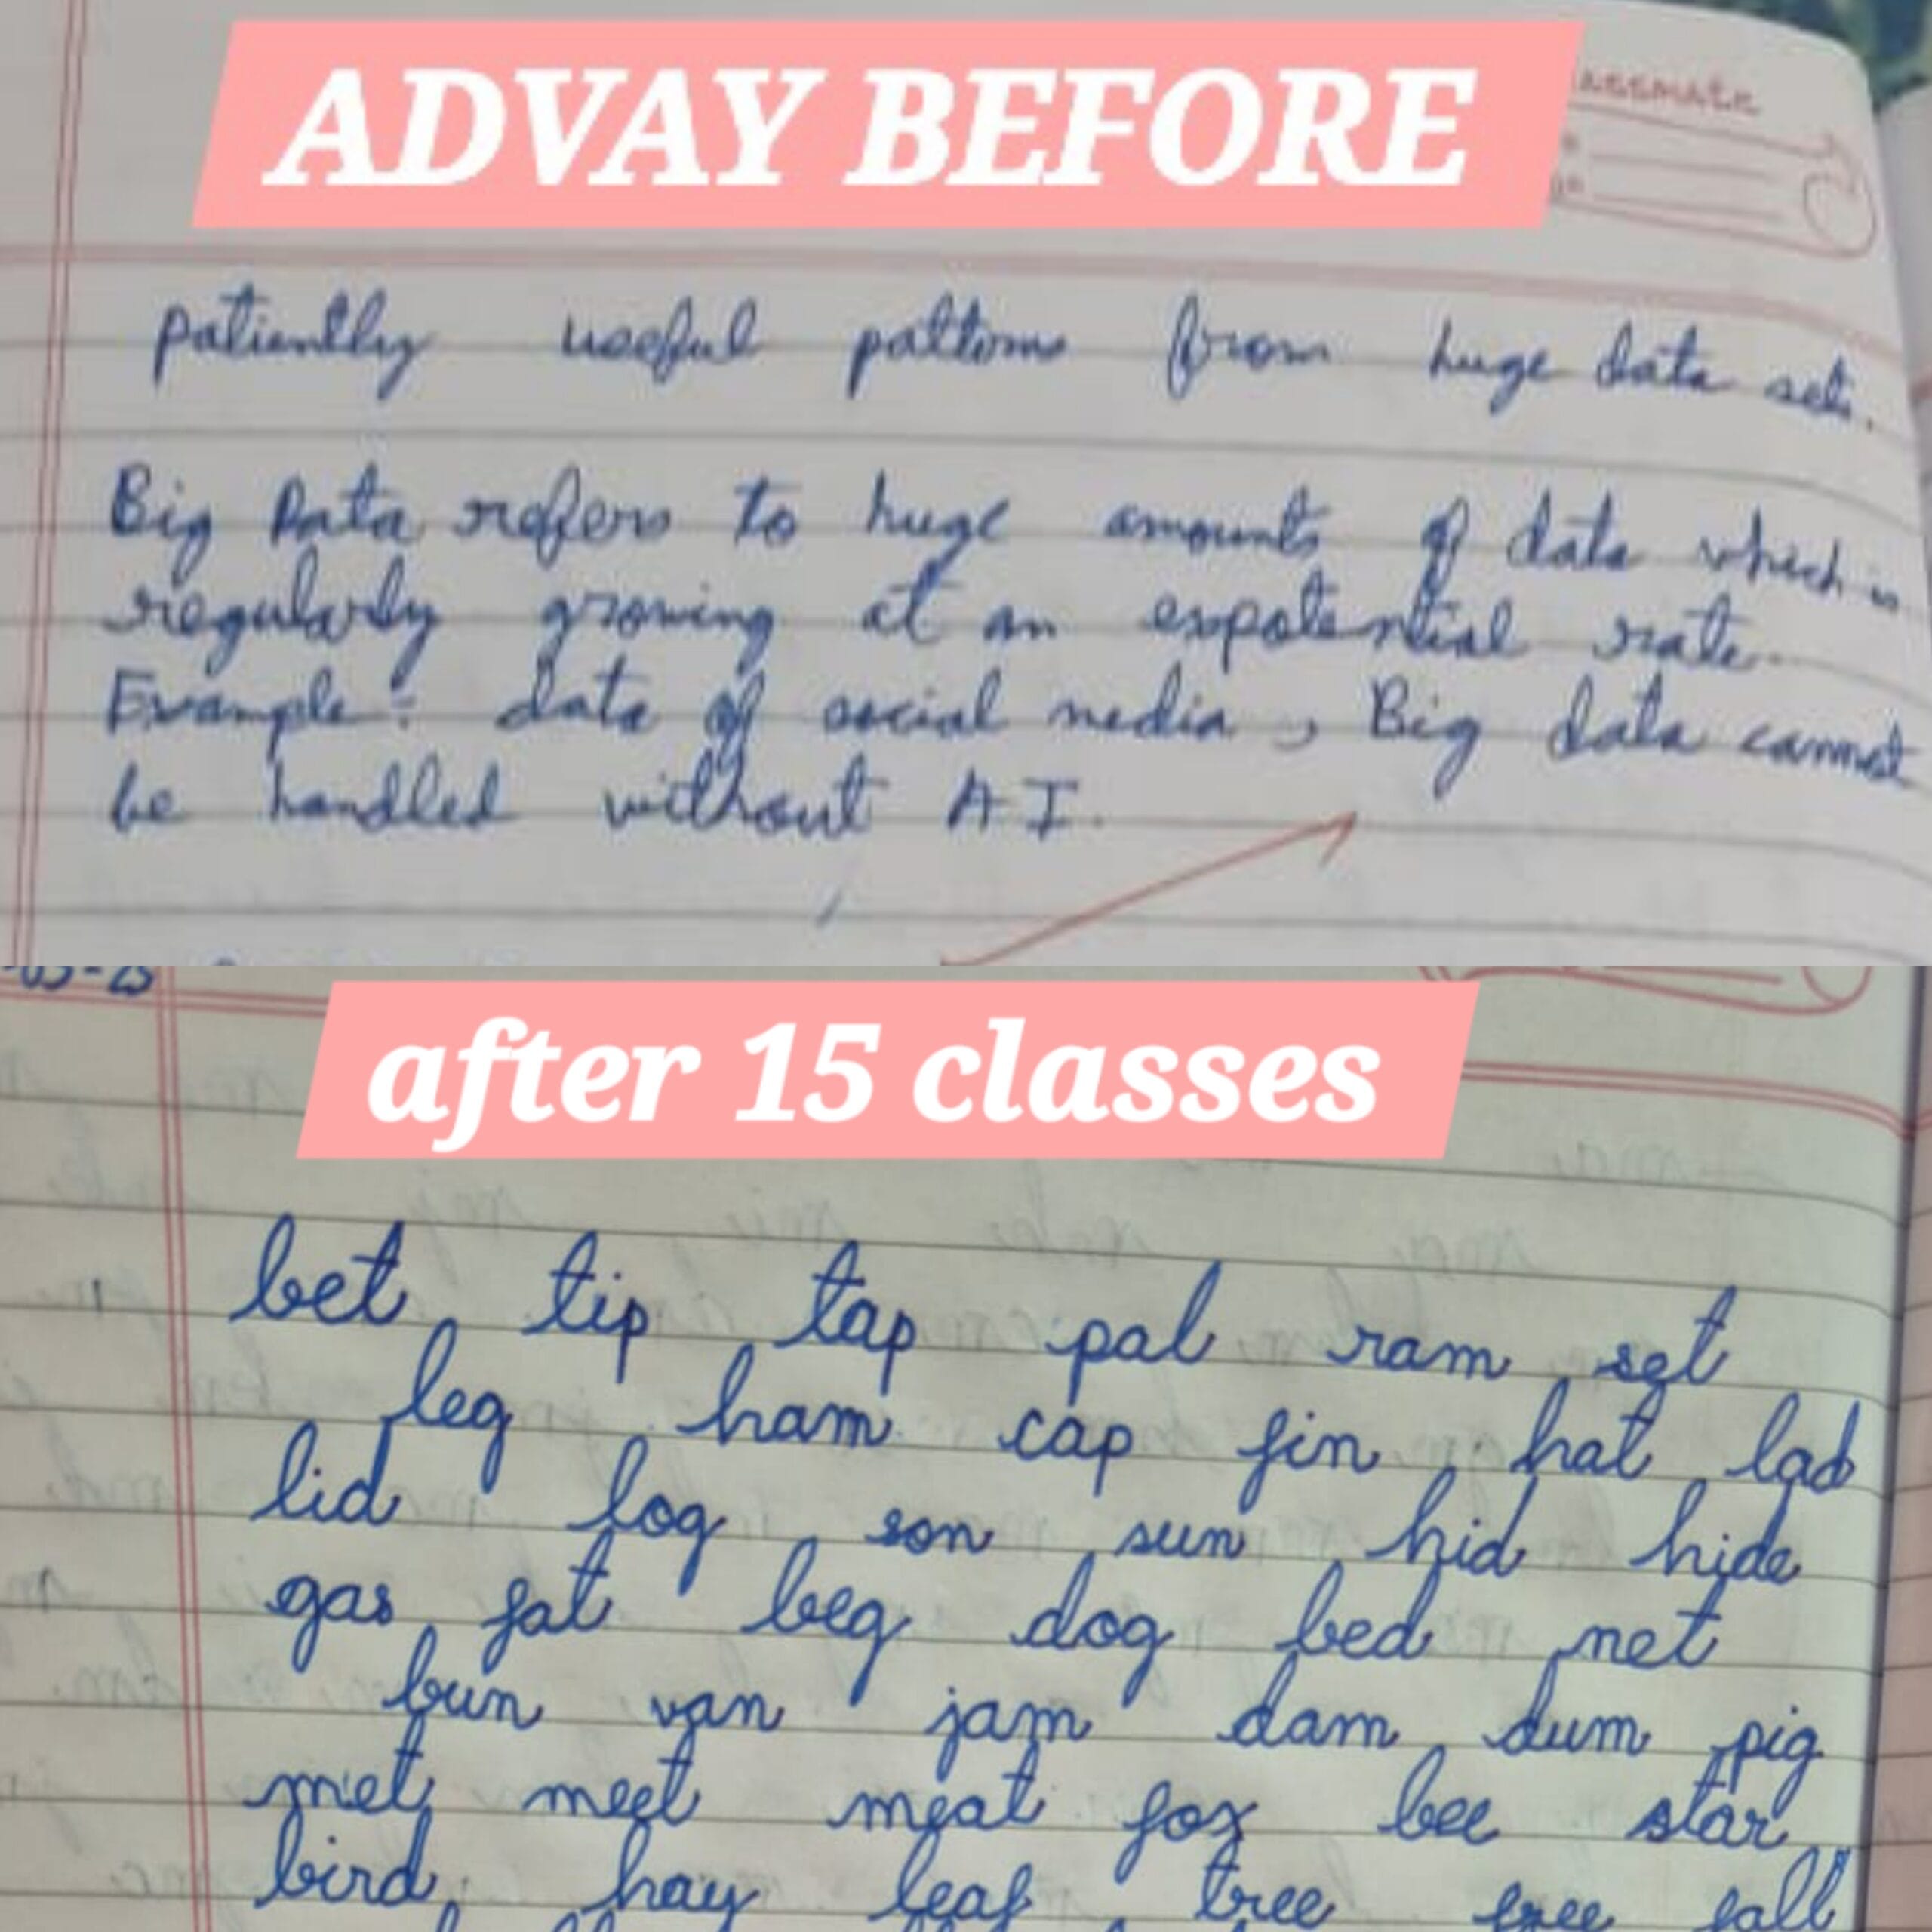 ADVAY BEFORE
classmate
patiently useful pattons from huge data sets.
Big Data refers to huge amounts of data which is
regularly growing at an expotential rate.
Example: data of social media, Big data cannot
be handled without AI.
after 15 classes
bet tip tap pal ram set
leg ham cap fin hat lad
lid log son sun hid hide
gas fat beg dog bed net
bun van jam dam dum pig
met meet meat fox bee star
bird hay leaf tree free fall